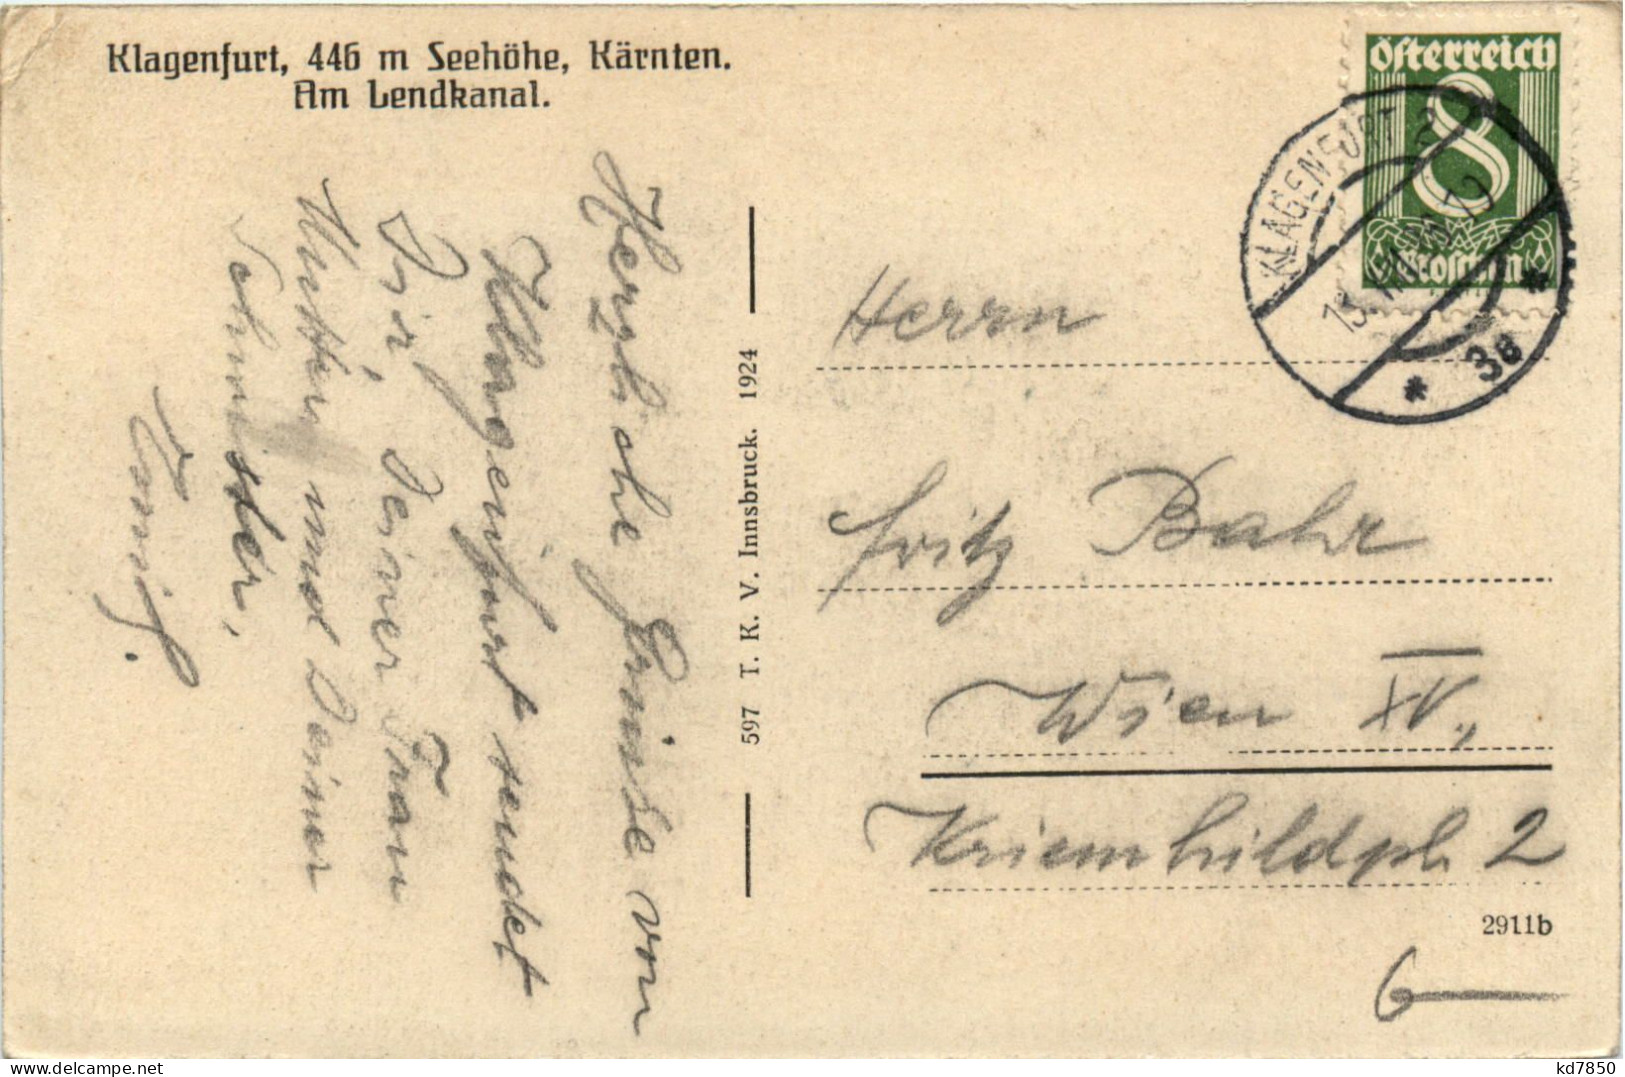 Klagenfurt, 446 m Seehöhe, Kärnten.
Am Lendkanal.
Herzliche Grüsse von
Klagenfurt sendet
Dir, Deiner Frau
Mutter und Deiner
Schwister,
597 T. K. V. Innsbruck. 1924
Österreich
8
Groschen
KLAGENFURT 2
* 3a *
Herrn
Fritz Bahr
Wien XV.,
Kriemhildpl. 2
2911b
delcampe.net
kd7850